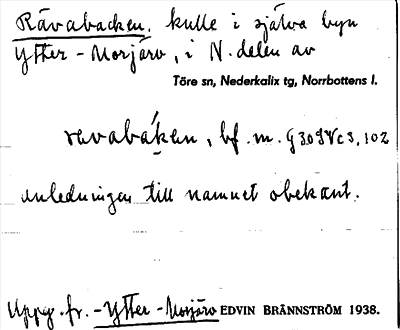 Rävabacken. kulle i själva byn
Ytter-Morjärv, i N. delen av
Töre sn, Nederkalix tg, Norrbottens l.
ravabákan, bf. m. G309Vc3,102
Anledningen till namnet obekant.
Uppg. fr. - Ytter - Morjärv EDVIN BRÄNNSTRÖM 1938.